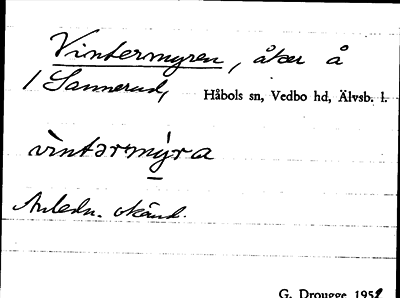 Vintermyren, åker å
1 Sannerud,
Håbols sn, Vedbo hd, Älvsb. l.
vìntərmýra
Anledn. okänd.
G. Drougge 1952